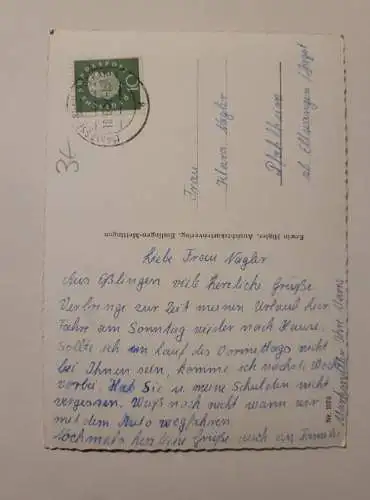 Liebe Frau Nagler
Aus Eßlingen viele herzliche Grüße
Verbringe zur Zeit meinen Urlaub hier
Fahre am Sonntag wieder nach Hause.
sollte ich im Lauf des Vormittags nicht
bei Ihnen sein, komme ich nächste Woche
vorbei. Hab Sie u. meine Schulden nicht
vergessen. Weiß noch nicht wann wir
mit dem Auto wegfahren
Nochmals herzliche Grüße auch an Familie
Ihr Hans
Frau
Klara Nagler
Pfahlheim
bei Ellwangen / Jagst
Erwin Higler, Ansichtskartenverlag, Esslingen-Mettingen
DEUTSCHE BUNDESPOST